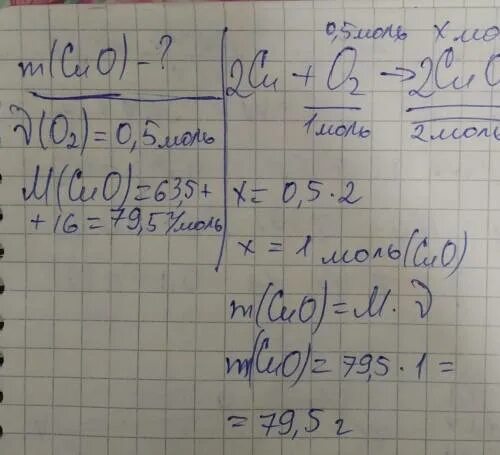 m(CuO) - ?
ν(O₂) = 0,5 моль
M(CuO) = 63,5 +
+ 16 = 79,5 г/моль
0,5 моль х мо
2Cu + O₂ → 2CuO
1 моль 2 моль
x = 0,5 · 2
x = 1 моль (CuO)
m(CuO) = M · ν
m(CuO) = 79,5 · 1 =
= 79,5 г